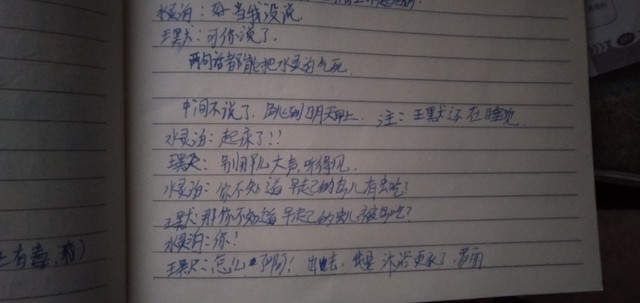 水灵泊：好当我没说
王默：可你说了.
两句话都能把水灵泊气死.
中间不说了，跳到明天早上. 注：王默还在睡觉
水灵泊：起床了！！
王默：别用那么大声，听得见.
水灵泊：你不知道早起的鸟儿有虫吃！
王默：那你不知道早起的虫儿被鸟吃？
水灵泊：你！
王默：怎么 出去，我要沐浴更衣了.
上有毒.